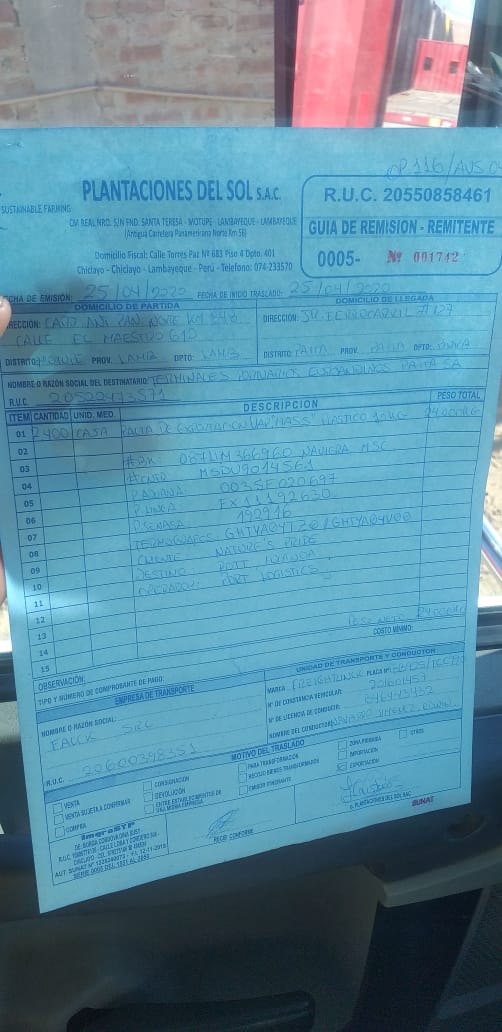 OP 116/AUS.
SUSTAINABLE FARMING
PLANTACIONES DEL SOL S.A.C.
CM REAL NRO. S/N FND. SANTA TERESA - MOTUPE - LAMBAYEQUE - LAMBAYEQUE
(Antigua Carretera Panamericana Norte Km 56)
Domicilio Fiscal: Calle Torres Paz Nº 683 Piso 4 Dpto. 401
Chiclayo - Chiclayo - Lambayeque - Perú - Télefono: 074-233570
R.U.C. 20550858461
GUIA DE REMISION - REMITENTE
0005- Nº 001742
FECHA DE EMISIÓN: 25/04/2020 FECHA DE INICIO TRASLADO: 25/04/2020
DOMICILIO DE PARTIDA
DIRECCIÓN: NORTE KM
CALLE EL MAESTRO 610
DISTRITO: PROV. LAMB DPTO: LAMB
DOMICILIO DE LLEGADA
DIRECCIÓN: JR FERROCARRIL # 127
DISTRITO: PAITA PROV. PAITA DPTO: PIURA
NOMBRE O RAZÓN SOCIAL DEL DESTINATARIO: TERMINALES PORTUARIOS EUROANDINOS PAITA SA
R.U.C. 20522473571
ITEM CANTIDAD UNID. MED. DESCRIPCION PESO TOTAL
01 2400 CAJA PALTA DE EXPORTACION VAR "HASS" PLASTICO 10KG 24.000KG
02
03 # BK: 087LIM366960 NAVIERA MSC
04 # CNTO MSDU9014561
05 P.ADUANA: 0035F020697
06 P.LINEA FX11192630
07 P.SENASA: 192916
08 TERMOGRAFOS: GHTYA04TZ0/GHTYA04V00
09 CLIENTE: NATURE'S PRIDE
10 DESTINO: ROTT HOLANDA
11 OPERADOR: LOGISTICS
12
13
14
15
PESO NETO 24000KG
COSTO MÍNIMO:
OBSERVACIÓN:
TIPO Y NÚMERO DE COMPROBANTE DE PAGO:
EMPRESA DE TRANSPORTE
NOMBRE O RAZÓN SOCIAL:
SRL
R.U.C. 20600398351
UNIDAD DE TRANSPORTE Y CONDUCTOR
MARCA FREIGHTLINER PLACA Nº
Nº DE CONSTANCIA VEHICULAR:
Nº DE LICENCIA DE CONDUCIR:
NOMBRE DEL CONDUCTOR: NAVARRO JIMENEZ
MOTIVO DEL TRASLADO
VENTA
VENTA SUJETA A CONFIRMAR
COMPRA
CONSIGNACION
DEVOLUCIÓN
ENTRE ESTABLECIMIENTOS DE UNA MISMA EMPRESA
PARA TRANSFORMACIÓN
RECOJO BIENES TRANSFORMACIÓN
EMISOR ITINERANTE
ZONA PRIMARIA
IMPORTACIÓN
EXPORTACIÓN
OTROS
ImgraSTP
RECIBÍ CONFORME
p. PLANTACIONES DEL SOL SAC
SUNAT